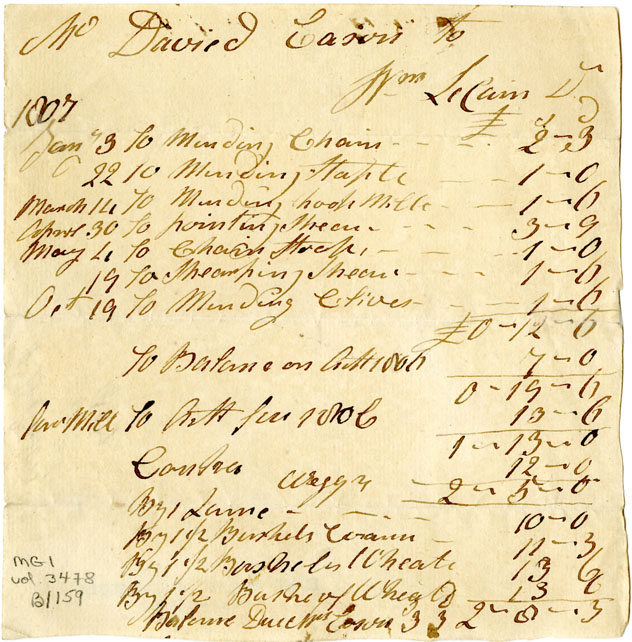 Mr Davied Eason to
Wm LeCain Dr
1807 £ s d
Jany 3 To Minding Chain - - - 2 - 3
22 to Minding Staple - - 1 - 0
March 14 To Minding hook Mill - - 1 - 6
Aprel 30 To pointing Shear - - 3 - 9
May 4 To Chain Hook - - 1 - 0
19 To Shearping Shear - - 1 - 0
Oct 19 To Minding Clives - - - 1 - 6
£0 - 12 - 0
To Balance on Actt 1806 7 - 0
0 - 19 - 6
Mill To Actt for 1806 13 - 6
1 - 13 - 0
Contra 12 - 0
2 - 5 - 0
By 1 Lame - - 10 - 0
By 1 1/2 Bushels Corn - 11 - 3
By 1 1/2 Bushels Wheate 13 6
By 1 1/2 Bushel of Wheat 13 6
Balance Due Mr Eason 3 3 2 - 8 - 3
MG1
vol. 3478
B/159